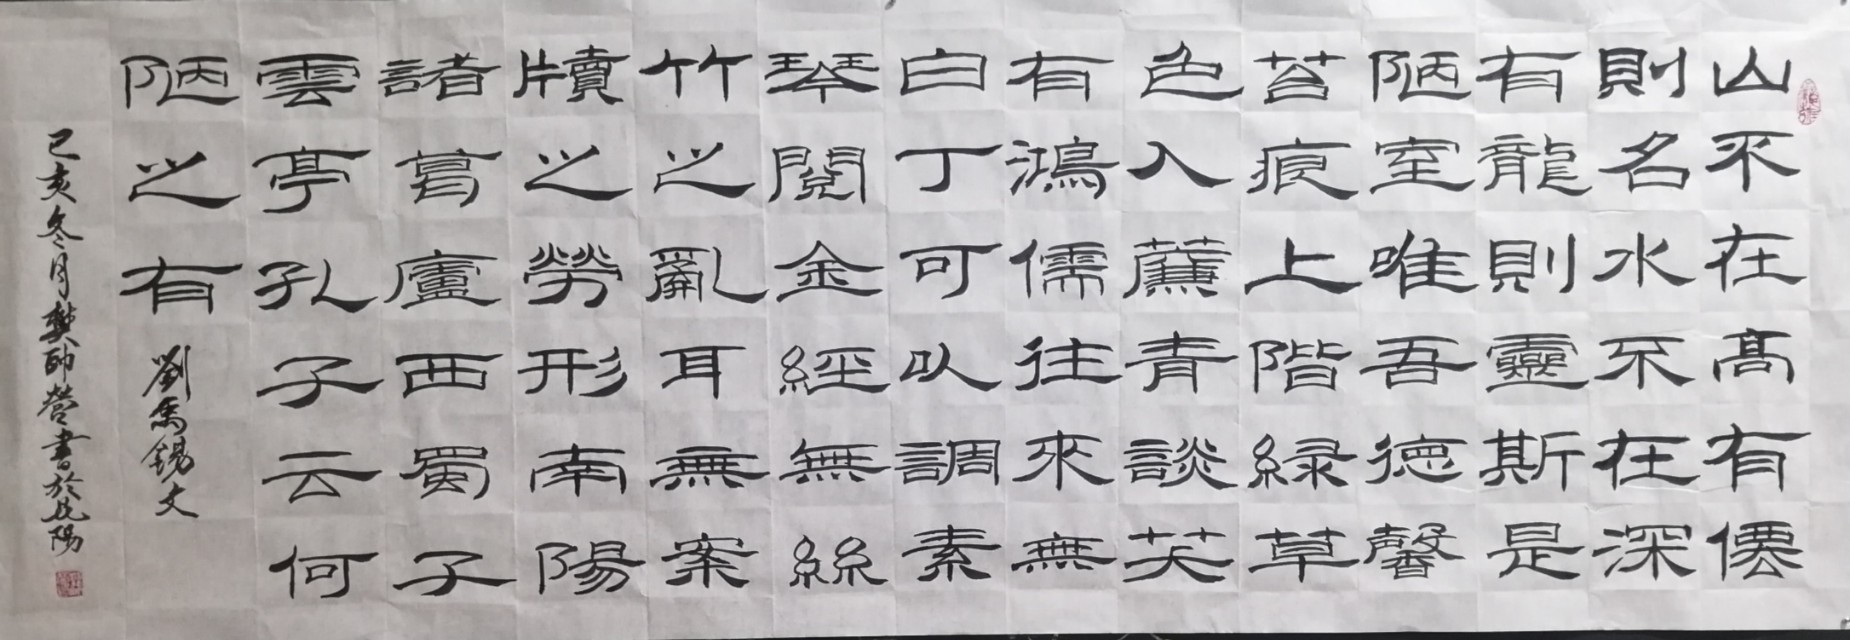 山不在高有僊
則名水不在深
有龍則靈斯是
陋室唯吾德馨
苔痕上階緑草
色入薦青談笑
有鴻儒往來無
白丁可以調素
琴閱金經無絲
竹之亂耳無案
牘之勞形南陽
諸葛廬西蜀子
雲亭孔子云何
陋之有
劉禹錫文
己亥冬月樊帥營書於沈陽